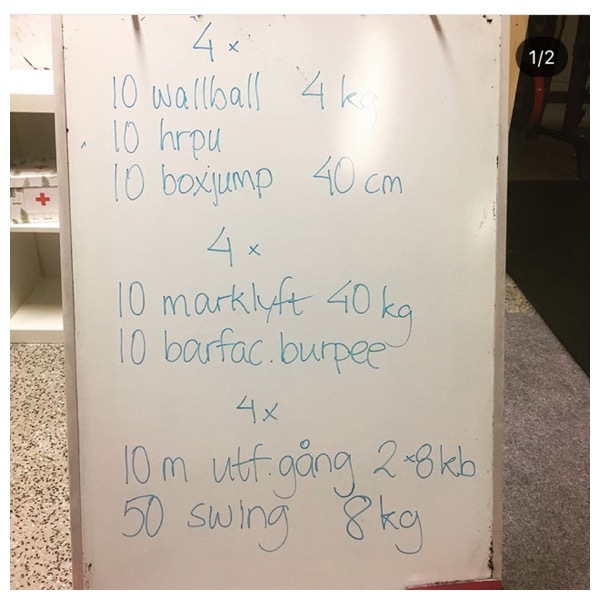 1/2
4 x
10 wallball 4 kg
10 hrpu
10 boxjump 40 cm
4 x
10 marklyft 40 kg
10 barfac.burpee
4x
10 m utf.gång 2×8kb
50 swing 8kg